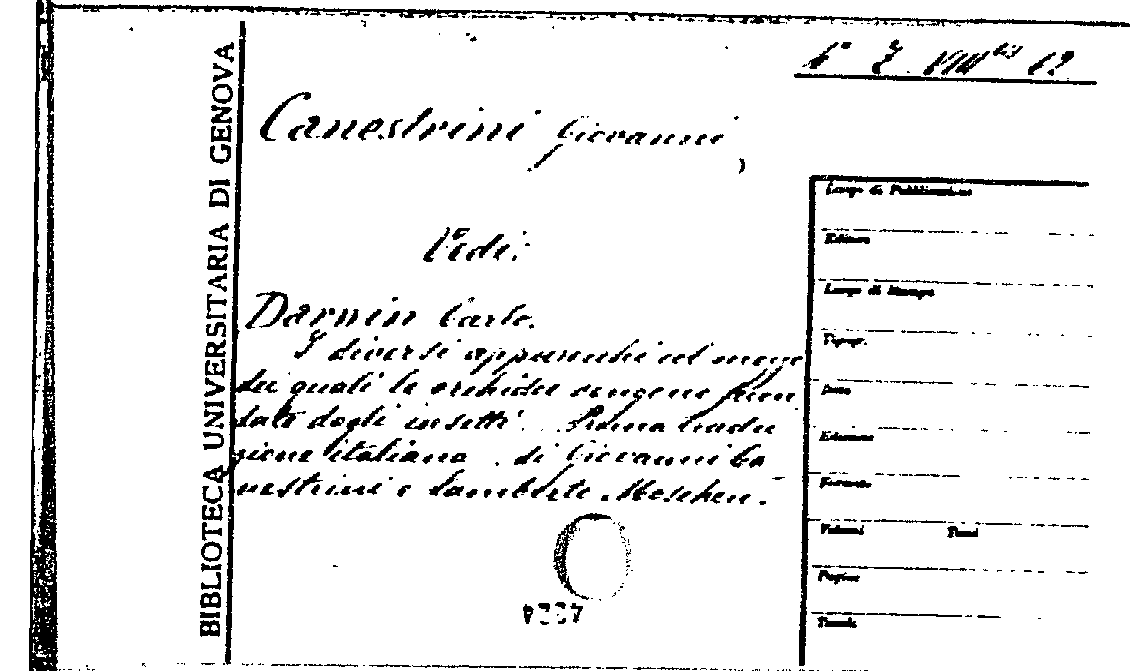 BIBLIOTECA UNIVERSITARIA DI GENOVA
Canestrini Giovanni,
Vedi:
Darwin Carlo.
I diversi apparecchi col mezzo
dei quali le orchidee vengono fecon
date dagli insetti. Prima tradu
zione italiana di Giovanni Ca
nestrini e Lamberto Moschen.
Luogo di Pubblicazione
Editore
Luogo di Stampa
Tipogr.
Data
Edizione
Formato
Volumi Tomi
Pagine
Tavole